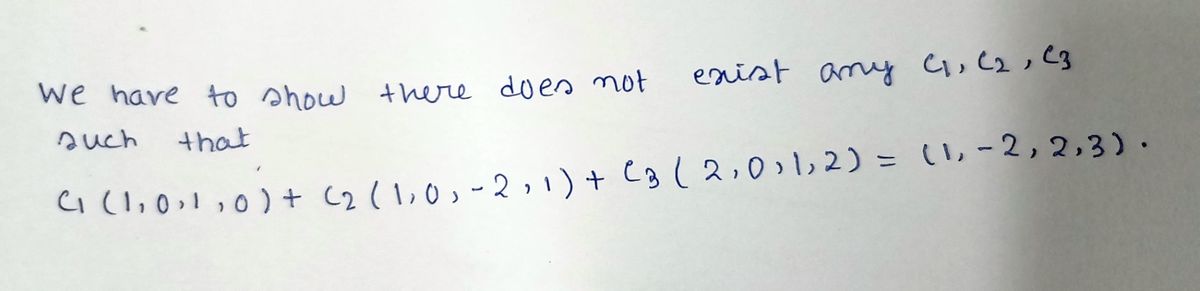 We have to show there does not exist any C1, C2, C3
such that
C1 (1,0,1,0) + C2 (1,0,-2,1) + C3 (2,0,1,2) = (1,-2,2,3).